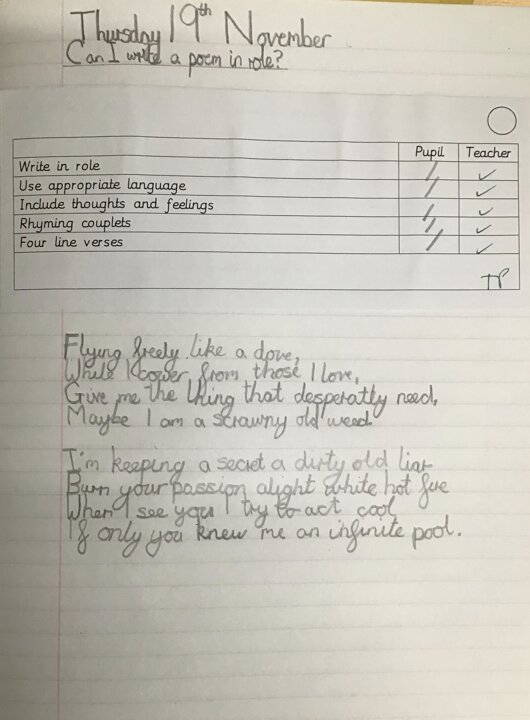 Thursday 19th November
Can I write a poem in role?
Pupil Teacher
Write in role
Use appropriate language
Include thoughts and feelings
Rhyming couplets
Four line verses
TP
Flying freely like a dove,
While I cower from those I love,
Give me the thing that desperatly need,
Maybe I am a scrawny old weed.
I'm keeping a secret a dirty old liar
Burn your passion alight white hot fire
When I see you I try to act cool
If only you knew me an infinite pool.